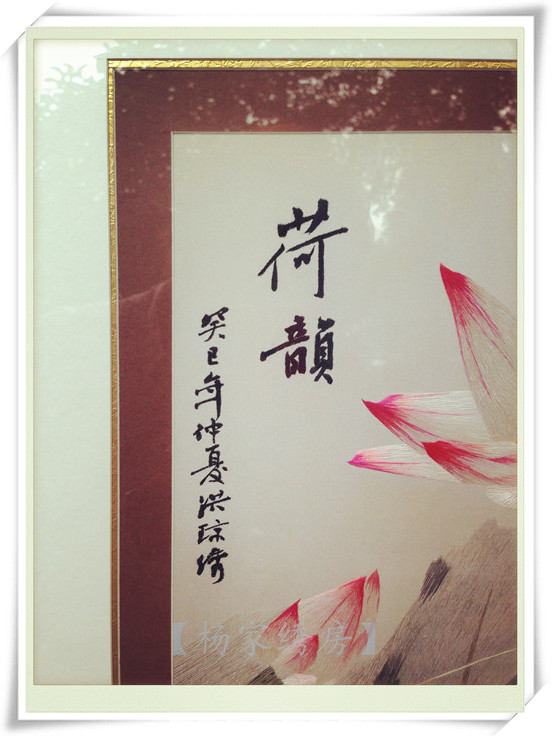 荷韻
癸巳年仲夏洪琼绣
【杨家绣房】